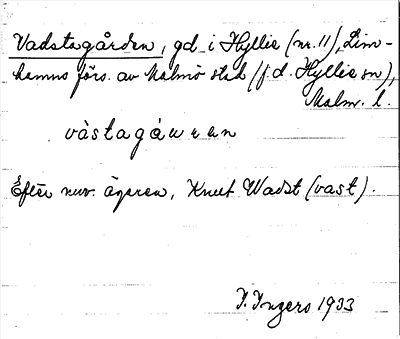 Vadstagården, gd i Hyllie (nr. 11), Lim-
hamns förs. av Malmö stad (f.d. Hyllie sn),
Malm. l.
vàstagáuran
Efter nuv. ägaren, Knut Wadst (vast).
I. Ingers 1933